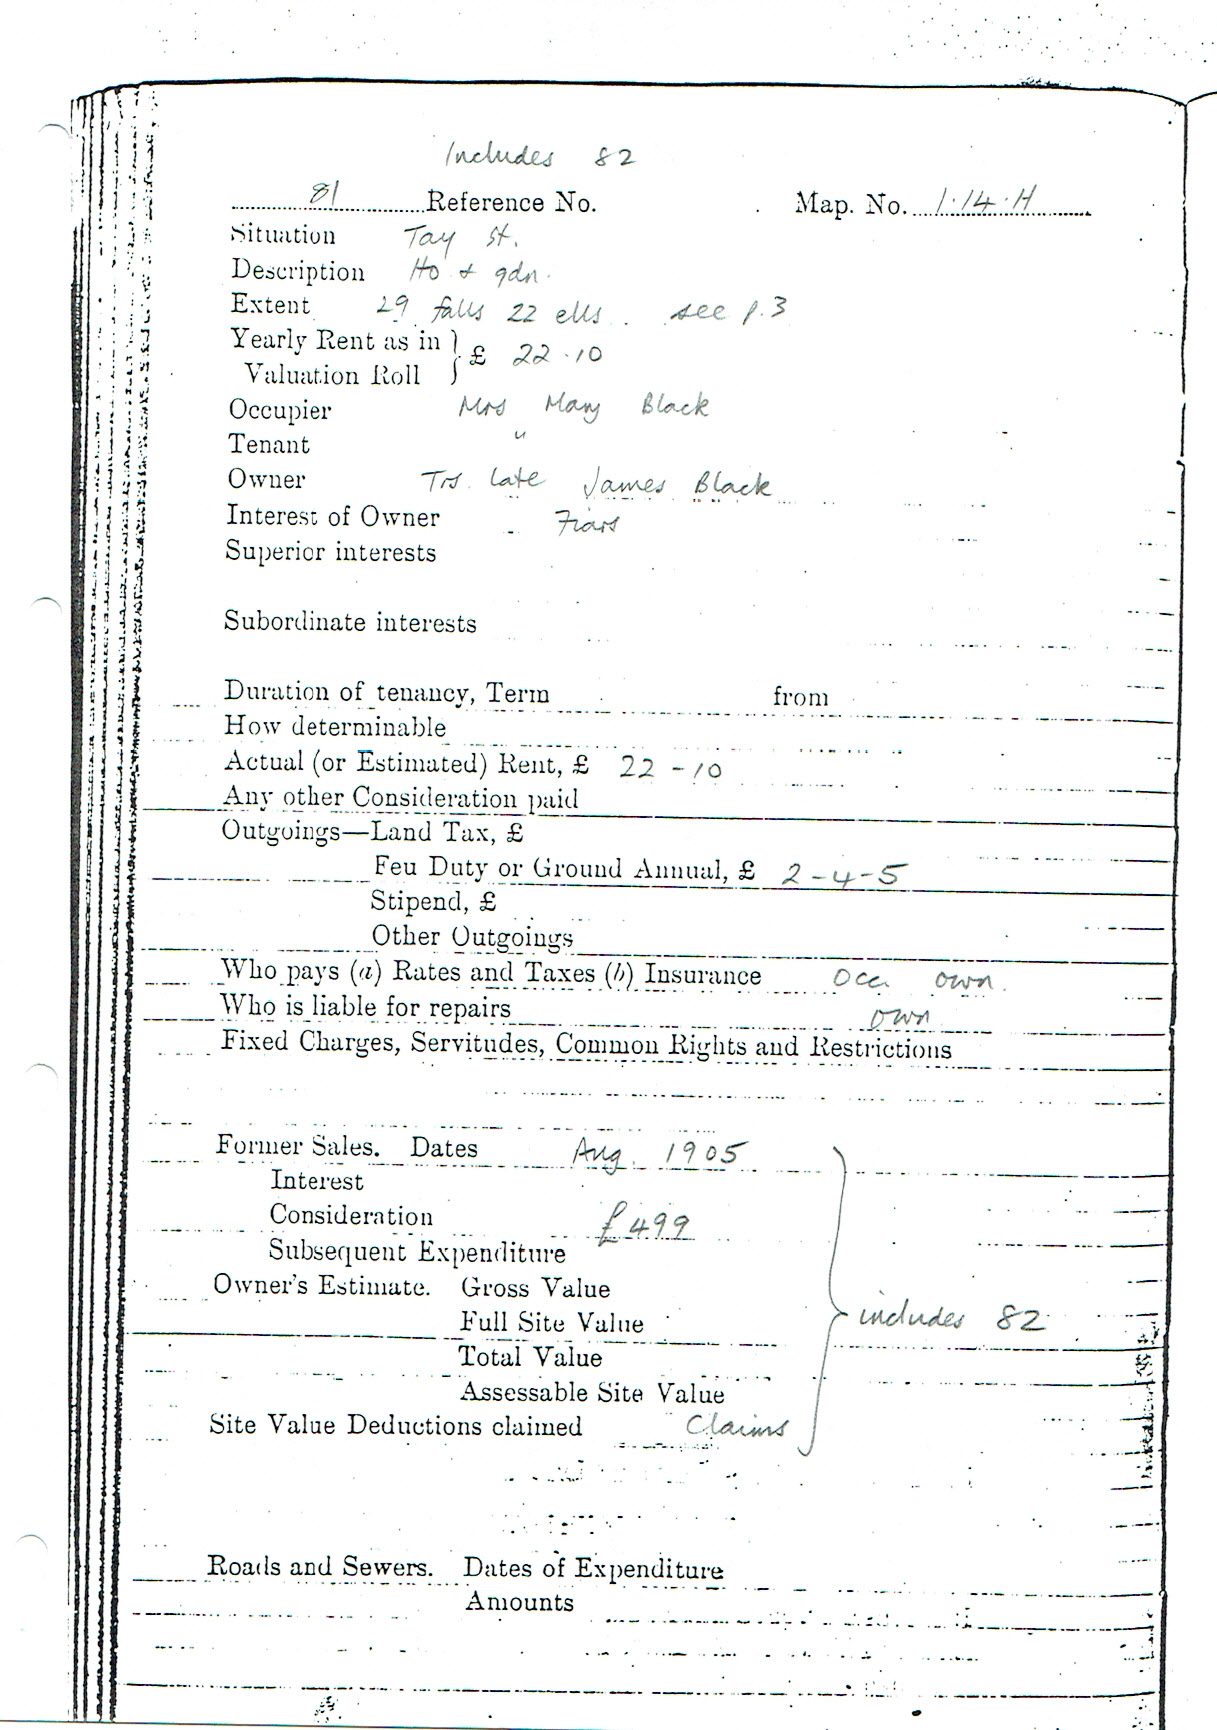 Includes 82
81 Reference No. Map. No. 1.14.H
Situation Tay St.
Description Ho & gdn.
Extent 29 falls 22 ells. see p.3
Yearly Rent as in
Valuation Roll } £ 22.10
Occupier Mrs Mary Black
Tenant "
Owner Trs. late James Black
Interest of Owner Fiars
Superior interests
Subordinate interests
Duration of tenancy, Term from
How determinable
Actual (or Estimated) Rent, £ 22-10
Any other Consideration paid
Outgoings—Land Tax, £
Feu Duty or Ground Annual, £ 2-4-5
Stipend, £
Other Outgoings
Who pays (a) Rates and Taxes (b) Insurance Occ. Own.
Who is liable for repairs Own
Fixed Charges, Servitudes, Common Rights and Restrictions
Former Sales. Dates Aug. 1905
Interest
Consideration £499
Subsequent Expenditure
Owner's Estimate. Gross Value
Full Site Value } includes 82
Total Value
Assessable Site Value
Site Value Deductions claimed Claims
Roads and Sewers. Dates of Expenditure
Amounts